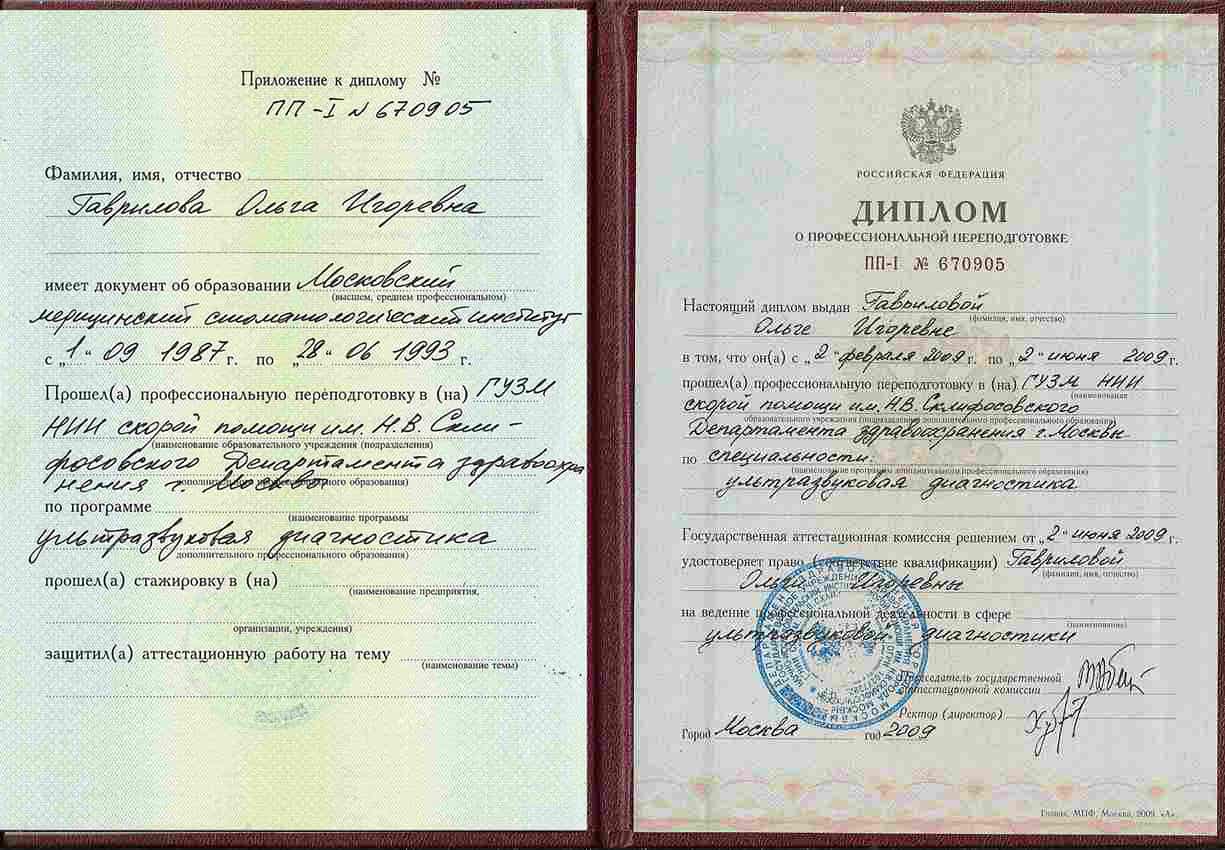 Приложение к диплому №
ПП-I № 670905
Фамилия, имя, отчество
Гаврилова Ольга Игоревна
имеет документ об образовании Московский
(высшем, среднем профессиональном)
медицинский стоматологический институт
с „1“ 09 1987 г. по „28“ 06 1993 г.
Прошел(а) профессиональную переподготовку в (на) ГУЗМ
НИИ скорой помощи им. Н.В. Скли-
(наименование образовательного учреждения (подразделения)
фосовского Департамента здравоохра
нения г. Москвы
дополнительного профессионального образования)
по программе
(наименование программы
ультразвуковая диагностика
дополнительного профессионального образования)
прошел(а) стажировку в (на)
(наименование предприятия,
организации, учреждения)
защитил(а) аттестационную работу на тему
(наименование темы)
РОССИЙСКАЯ ФЕДЕРАЦИЯ
ДИПЛОМ
О ПРОФЕССИОНАЛЬНОЙ ПЕРЕПОДГОТОВКЕ
ПП-I № 670905
Настоящий диплом выдан Гавриловой
(фамилия, имя, отчество)
Ольге Игоревне
в том, что он(а) с „2“ февраля 2009 г. по „2“ июня 2009 г.
прошел(а) профессиональную переподготовку в (на) ГУЗМ НИИ
(наименование
скорой помощи им. Н.В. Склифосовского
образовательного учреждения (подразделения) дополнительного профессионального образования)
Департамента здравоохранения г. Москвы
по специальности:
(наименование программы дополнительного профессионального образования)
ультразвуковая диагностика
Государственная аттестационная комиссия решением от „2“ июня 2009 г.
удостоверяет право (соответствие квалификации) Гавриловой
(фамилия, имя, отчество)
Ольги Игоревны
на ведение профессиональной деятельности в сфере
(наименование)
ультразвуковой диагностики
Председатель государственной
аттестационной комиссии
Ректор (директор)
Город Москва год 2009
Гознак, МПФ, Москва, 2009, «А».